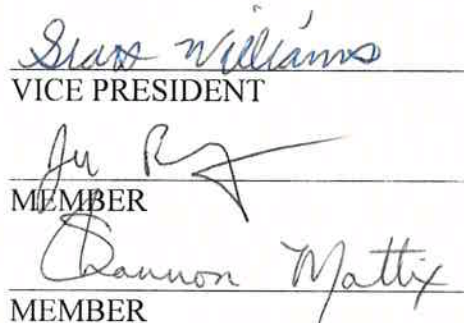 Williams
VICE PRESIDENT
MEMBER
Shannon Mattix
MEMBER